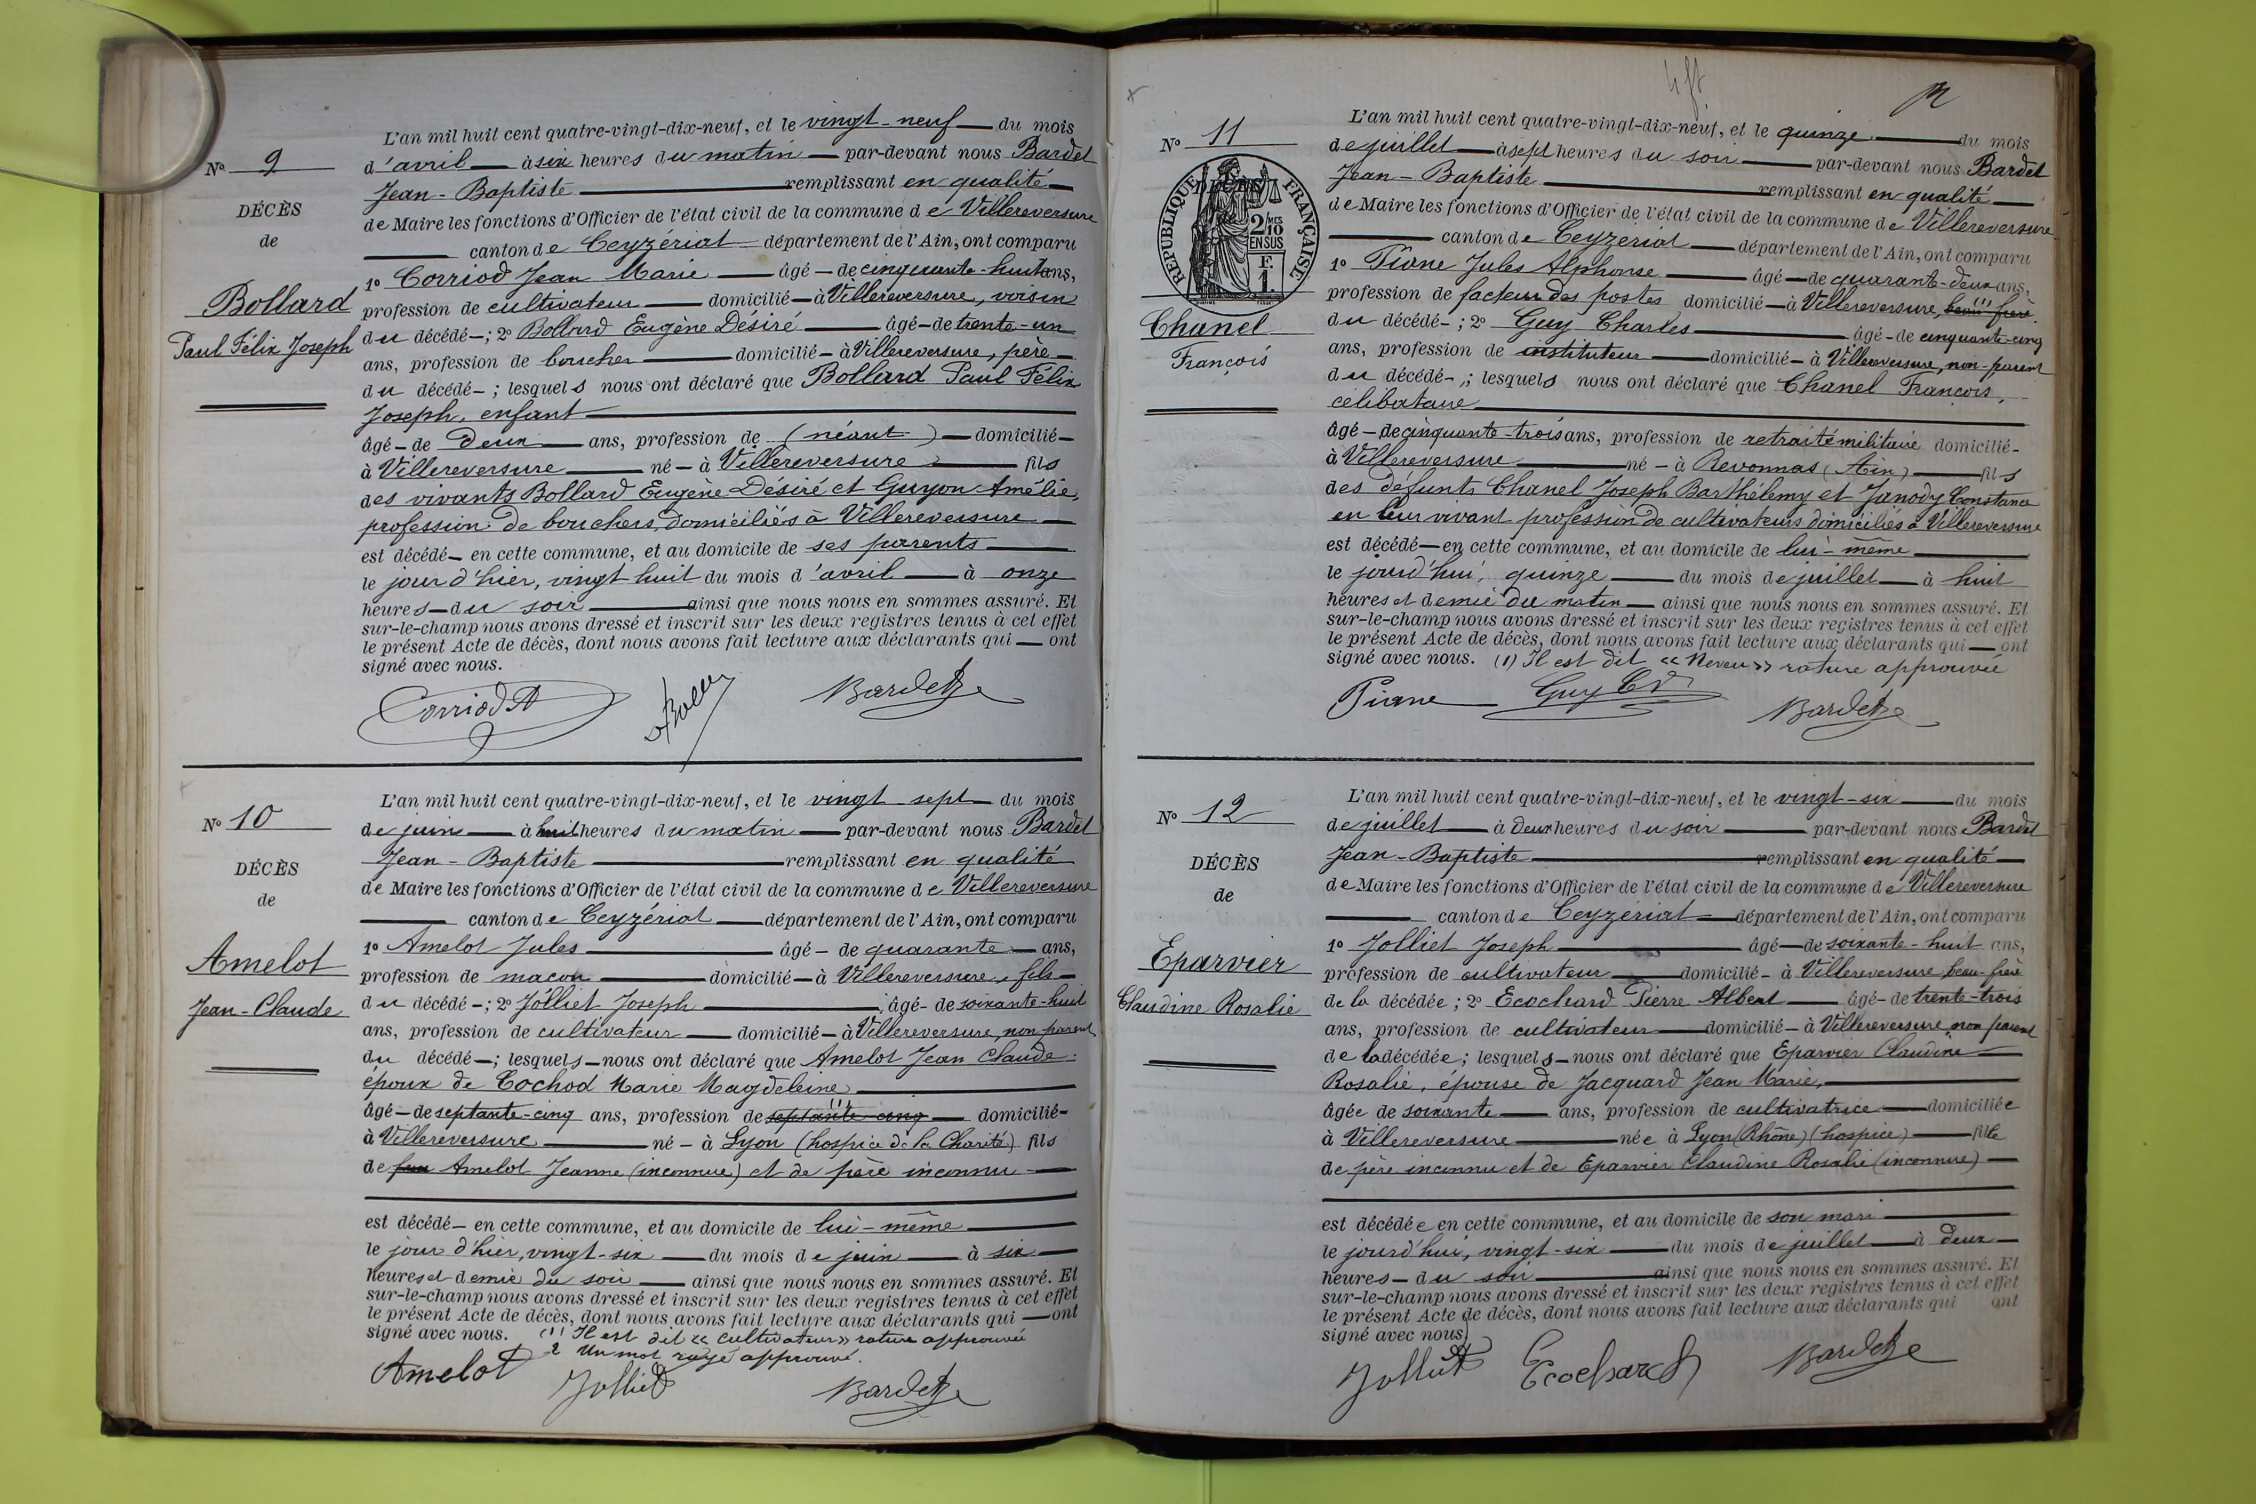 N° 9
DÉCÈS
de
Bollard
Paul Félix Joseph
L'an mil huit cent quatre-vingt-dix-neuf, et le vingt-neuf du mois
d'avril à six heures du matin par-devant nous Bardet
Jean-Baptiste remplissant en qualité
de Maire les fonctions d'Officier de l'état civil de la commune de Villereversure
canton de Ceyzériat département de l'Ain, ont comparu
1° Corriod Jean Marie âgé de cinquante-huit ans,
profession de cultivateur domicilié à Villereversure, voisin
du décédé ; 2° Bollard Eugène Désiré âgé de trente-un
ans, profession de boucher domicilié à Villereversure, père
du décédé ; lesquels nous ont déclaré que Bollard Paul Félix
Joseph, enfant
âgé de deux ans, profession de (néant) domicilié
à Villereversure né à Villereversure fils
des vivants Bollard Eugène Désiré et Guyon Amélie,
profession de bouchers, domiciliés à Villereversure
est décédé en cette commune, et au domicile de ses parents
le jour d'hier, vingt huit du mois d'avril à onze
heures du soir ainsi que nous nous en sommes assuré. Et
sur-le-champ nous avons dressé et inscrit sur les deux registres tenus à cet effet
le présent Acte de décès, dont nous avons fait lecture aux déclarants qui ont
signé avec nous.
Corriod Bardet
N° 10
DÉCÈS
de
Amelot
Jean-Claude
L'an mil huit cent quatre-vingt-dix-neuf, et le vingt sept du mois
de juin à huit heures du matin par-devant nous Bardet
Jean-Baptiste remplissant en qualité
de Maire les fonctions d'Officier de l'état civil de la commune de Villereversure
canton de Ceyzériat département de l'Ain, ont comparu
1° Amelot Jules âgé de quarante ans,
profession de maçon domicilié à Villereversure, fils
du décédé ; 2° Jolliet Joseph âgé de soixante-huit
ans, profession de cultivateur domicilié à Villereversure, non parent
du décédé ; lesquels nous ont déclaré que Amelot Jean Claude
époux de Cochod Marie Magdeleine
âgé de septante-cinq ans, profession de septante-cinq (1) domicilié
à Villereversure né à Lyon (hospice de la Charité) fils
de feu Amelot Jeanne (inconnue) et de père inconnu
est décédé en cette commune, et au domicile de lui-même
le jour d'hier, vingt-six du mois de juin à six
heures et demie du soir ainsi que nous nous en sommes assuré. Et
sur-le-champ nous avons dressé et inscrit sur les deux registres tenus à cet effet
le présent Acte de décès, dont nous avons fait lecture aux déclarants qui ont
signé avec nous. (1) Il est dit « cultivateur » rature approuvée
2 Un mot rayé approuvé.
Amelot Jolliet Bardet
N° 11
DÉCÈS
RÉPUBLIQUE FRANÇAISE
2 MES 10 EN SUS
F. 1.
Chanel
François
L'an mil huit cent quatre-vingt-dix-neuf, et le quinze du mois
de juillet à sept heures du soir par-devant nous Bardet
Jean-Baptiste remplissant en qualité
de Maire les fonctions d'Officier de l'état civil de la commune de Villereversure
canton de Ceyzériat département de l'Ain, ont comparu
1° Piane Jules Alphonse âgé de quarante-deux ans,
profession de facteur des postes domicilié à Villereversure, beau frère (1)
du décédé ; 2° Guy Charles âgé de cinquante-cinq
ans, profession de instituteur domicilié à Villereversure, non-parent
du décédé ; lesquels nous ont déclaré que Chanel François,
célibataire
âgé de cinquante-trois ans, profession de retraité militaire domicilié
à Villereversure né à Revonnas (Ain) fils
des défunts Chanel Joseph Barthélemy et Janody Constance
en leur vivant profession de cultivateurs domiciliés à Villereversure
est décédé en cette commune, et au domicile de lui-même
le jourd'hui, quinze du mois de juillet à huit
heures et demie du matin ainsi que nous nous en sommes assuré. Et
sur-le-champ nous avons dressé et inscrit sur les deux registres tenus à cet effet
le présent Acte de décès, dont nous avons fait lecture aux déclarants qui ont
signé avec nous. (1) Il est dit « Neveu » rature approuvée
Piane Guy Ch Bardet
N° 12
DÉCÈS
de
Eparvier
Claudine Rosalie
L'an mil huit cent quatre-vingt-dix-neuf, et le vingt-six du mois
de juillet à deux heures du soir par-devant nous Bardet
Jean-Baptiste remplissant en qualité
de Maire les fonctions d'Officier de l'état civil de la commune de Villereversure
canton de Ceyzériat département de l'Ain, ont comparu
1° Jolliet Joseph âgé de soixante-huit ans,
profession de cultivateur domicilié à Villereversure, beau-frère
de la décédée ; 2° Ecochard Pierre Albert âgé de trente-trois
ans, profession de cultivateur domicilié à Villereversure non parent
de la décédée ; lesquels nous ont déclaré que Eparvier Claudine
Rosalie, épouse de Jacquard Jean Marie,
âgée de soixante ans, profession de cultivatrice domiciliée
à Villereversure née à Lyon (Rhône) (hospice) fille
de père inconnu et de Eparvier Claudine Rosalie (inconnue)
est décédée en cette commune, et au domicile de son mari
le jourd'hui, vingt-six du mois de juillet à deux
heures du soir ainsi que nous nous en sommes assuré. Et
sur-le-champ nous avons dressé et inscrit sur les deux registres tenus à cet effet
le présent Acte de décès, dont nous avons fait lecture aux déclarants qui ont
signé avec nous.
Jolliet Ecochard Bardet